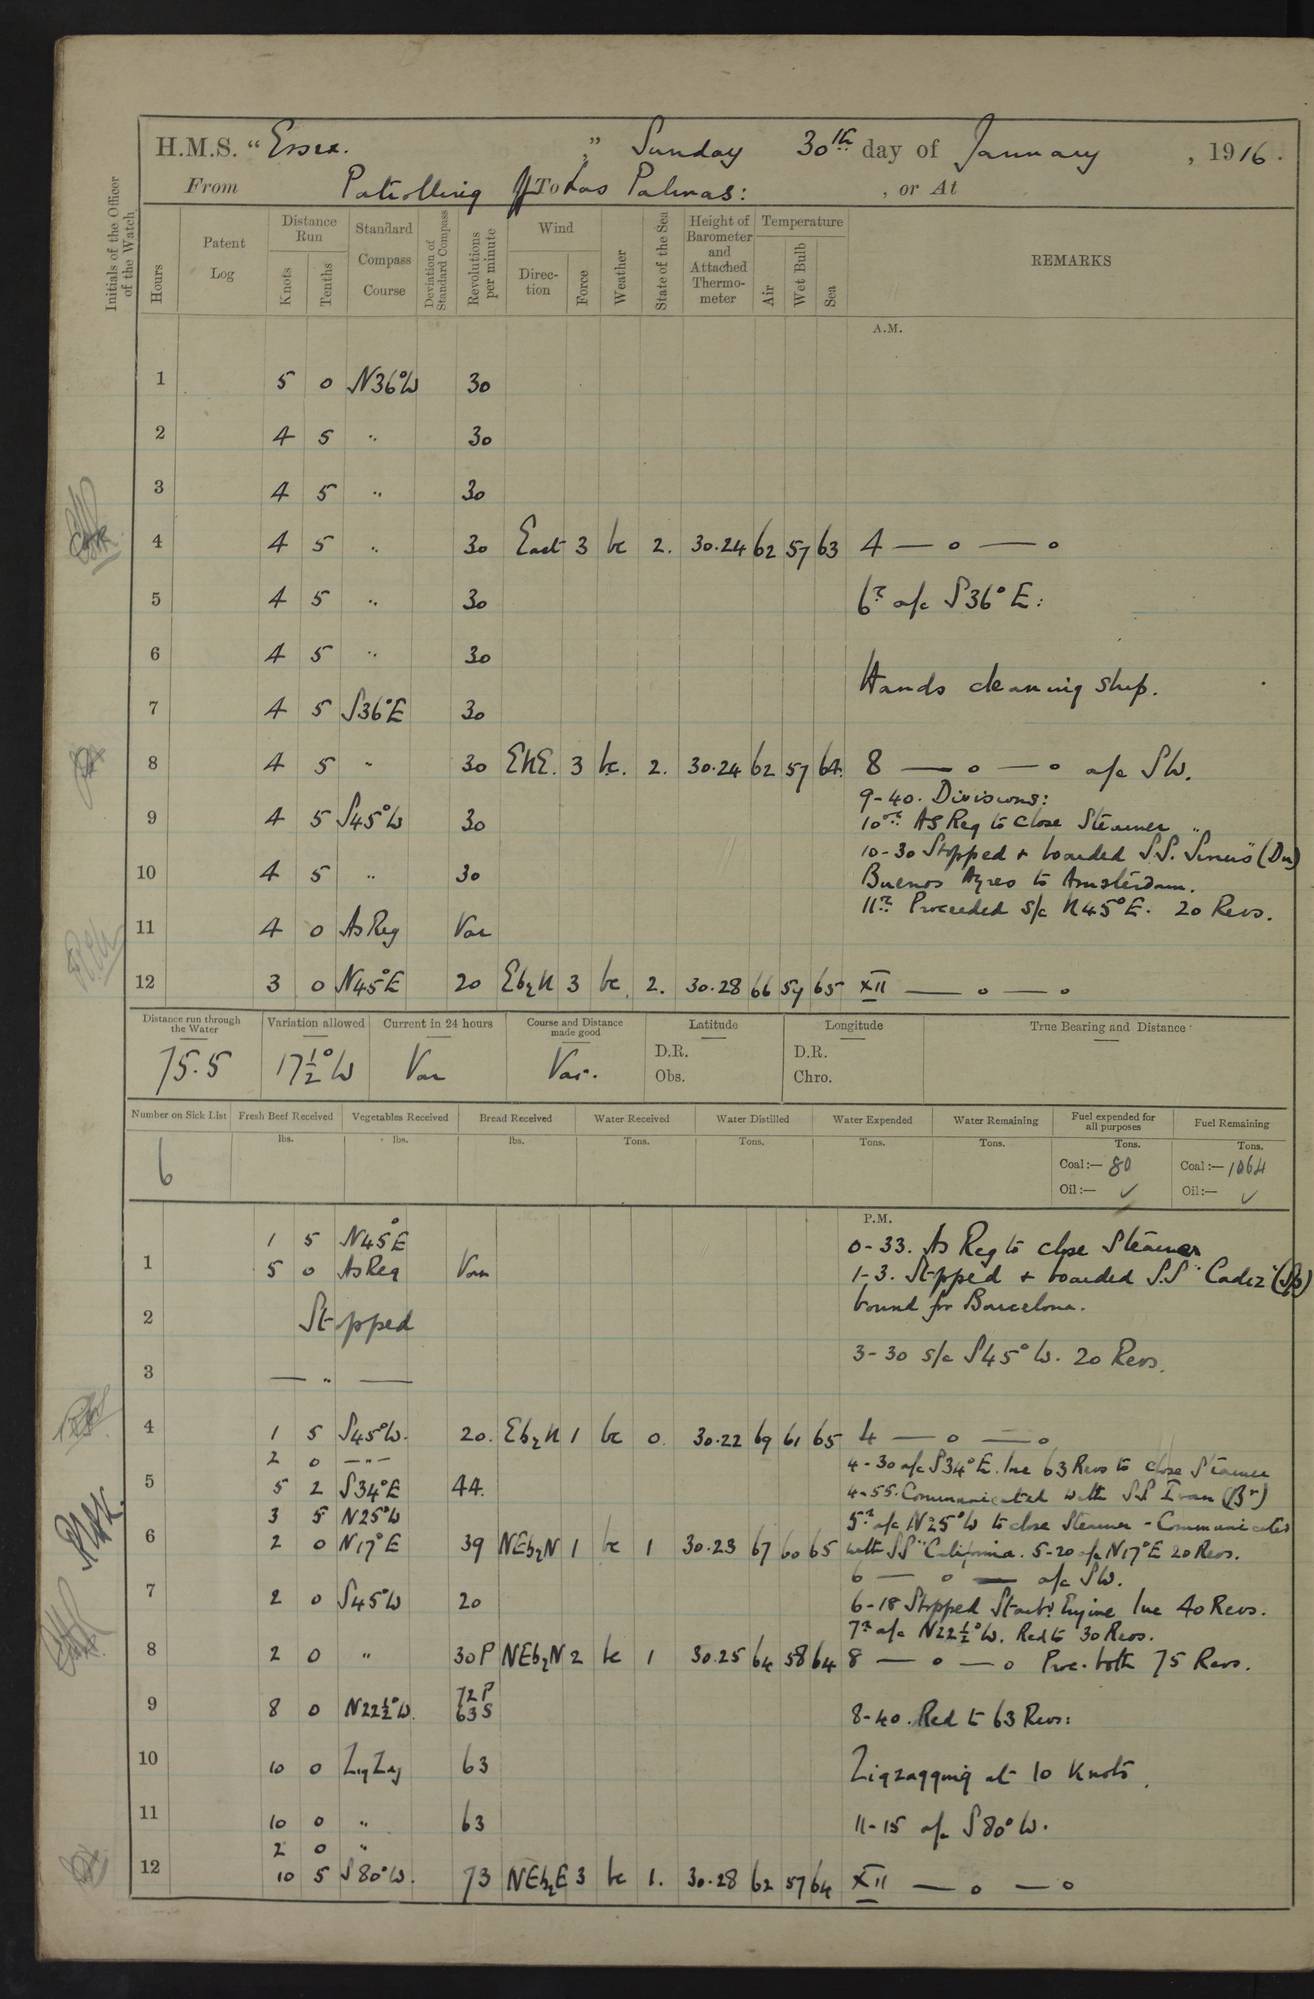 H.M.S. "Essex.", Sunday 30th day of January, 1916.
From Patrolling To Las Palmas: , or At
Initials of the Officer of the Watch
Hours
Patent Log
Distance Run
Knots
Tenths
Standard Compass Course
Deviation of Standard Compass
Revolutions per minute
Wind
Direction
Force
Weather
State of the Sea
Height of Barometer and Attached Thermometer
Temperature
Air
Wet Bulb
Sea
REMARKS
A.M.
1 5 0 N36°W 30
2 4 5 " 30
3 4 5 " 30
4 4 5 " 30 East 3 bc 2. 30.24 62 57 63 4 — o — o
5 4 5 " 30 6 a/c S36°E:
6 4 5 " 30
Hands cleaning ship.
7 4 5 S36°E 30
8 4 5 " 30 ENE. 3 bc. 2. 30.24 62 57 64. 8 — o — o a/c SW.
9-40. Divisions:
9 4 5 S45°W 30 10 As Req to close Steamer
10-30 Stopped + boarded S.S. (Du)
10 4 5 " 30 Buenos Ayres to Amsterdam.
11 Proceeded s/c N45°E. 20 Revs.
11 4 0 As Req Var
12 3 0 N45°E 20 EbN 3 bc 2. 30.28 66 59 65 XII — o — o
Distance run through the Water
Variation allowed
Current in 24 hours
Course and Distance made good
Latitude
Longitude
True Bearing and Distance
75.5 17½°W Var Var. D.R. D.R.
Obs. Chro.
Number on Sick List
Fresh Beef Received
Vegetables Received
Bread Received
Water Received
Water Distilled
Water Expended
Water Remaining
Fuel expended for all purposes
Fuel Remaining
lbs. lbs. lbs. Tons. Tons. Tons. Tons. Tons. Tons.
6 Coal:— 80 Coal:— 1064
Oil:— ✓ Oil:— ✓
P.M.
1 5 N45°E 0-33. As Req to close Steamer
1 5 0 As Req Var 1-3. Stopped + boarded S.S "Cadiz" (Sp)
bound for Barcelona.
2 Stopped
3-30 s/c S45°W. 20 Revs.
3 — " —
4 1 5 S45°W. 20. EbN 1 bc 0. 30.22 69 61 65 4 — o — o
2 0 — " — 4-30 a/c S34°E. Inc 63 Revs to close Steamer
5 5 2 S34°E 44. 4-55. Communicated with S.S Ivan (Br)
3 5 N25°W 5 a/c N25°W to close Steamer - Communicated
6 2 0 N17°E 39 NEbN 1 bc 1 30.23 67 60 65 with SS "California. 5-20 a/c N17°E 20 Revs.
6 — o — a/c SW.
7 2 0 S45°W 20 6-18 Stopped Starb'd Engine Inc 40 Revs.
7 a/c N22½°W. Red to 30 Revs.
8 2 0 " 30P NEbN 2 bc 1 30.25 64 58 64 8 — o — o Proc. both 75 Revs.
9 8 0 N22½°W. 72 P 63 S 8-40. Red to 63 Revs:
10 10 0 ZigZag 63 Zigzagging at 10 Knots.
11 10 0 " 63 11-15 a/c S80°W.
2 0 "
12 10 5 S80°W. 73 NEbE 3 bc 1. 30.28 62 57 64 XII — o — o